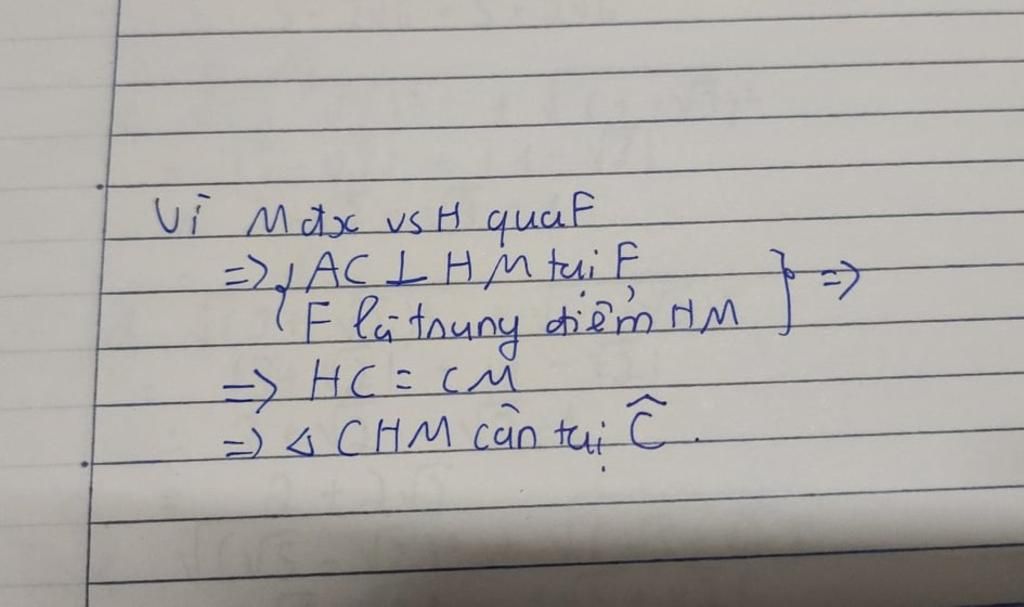 Vì M đx vs H qua F
=> { AC ⊥ HM tại F
F là trung điểm HM } =>
=> HC = CM
=> △ CHM cân tại Ĉ.